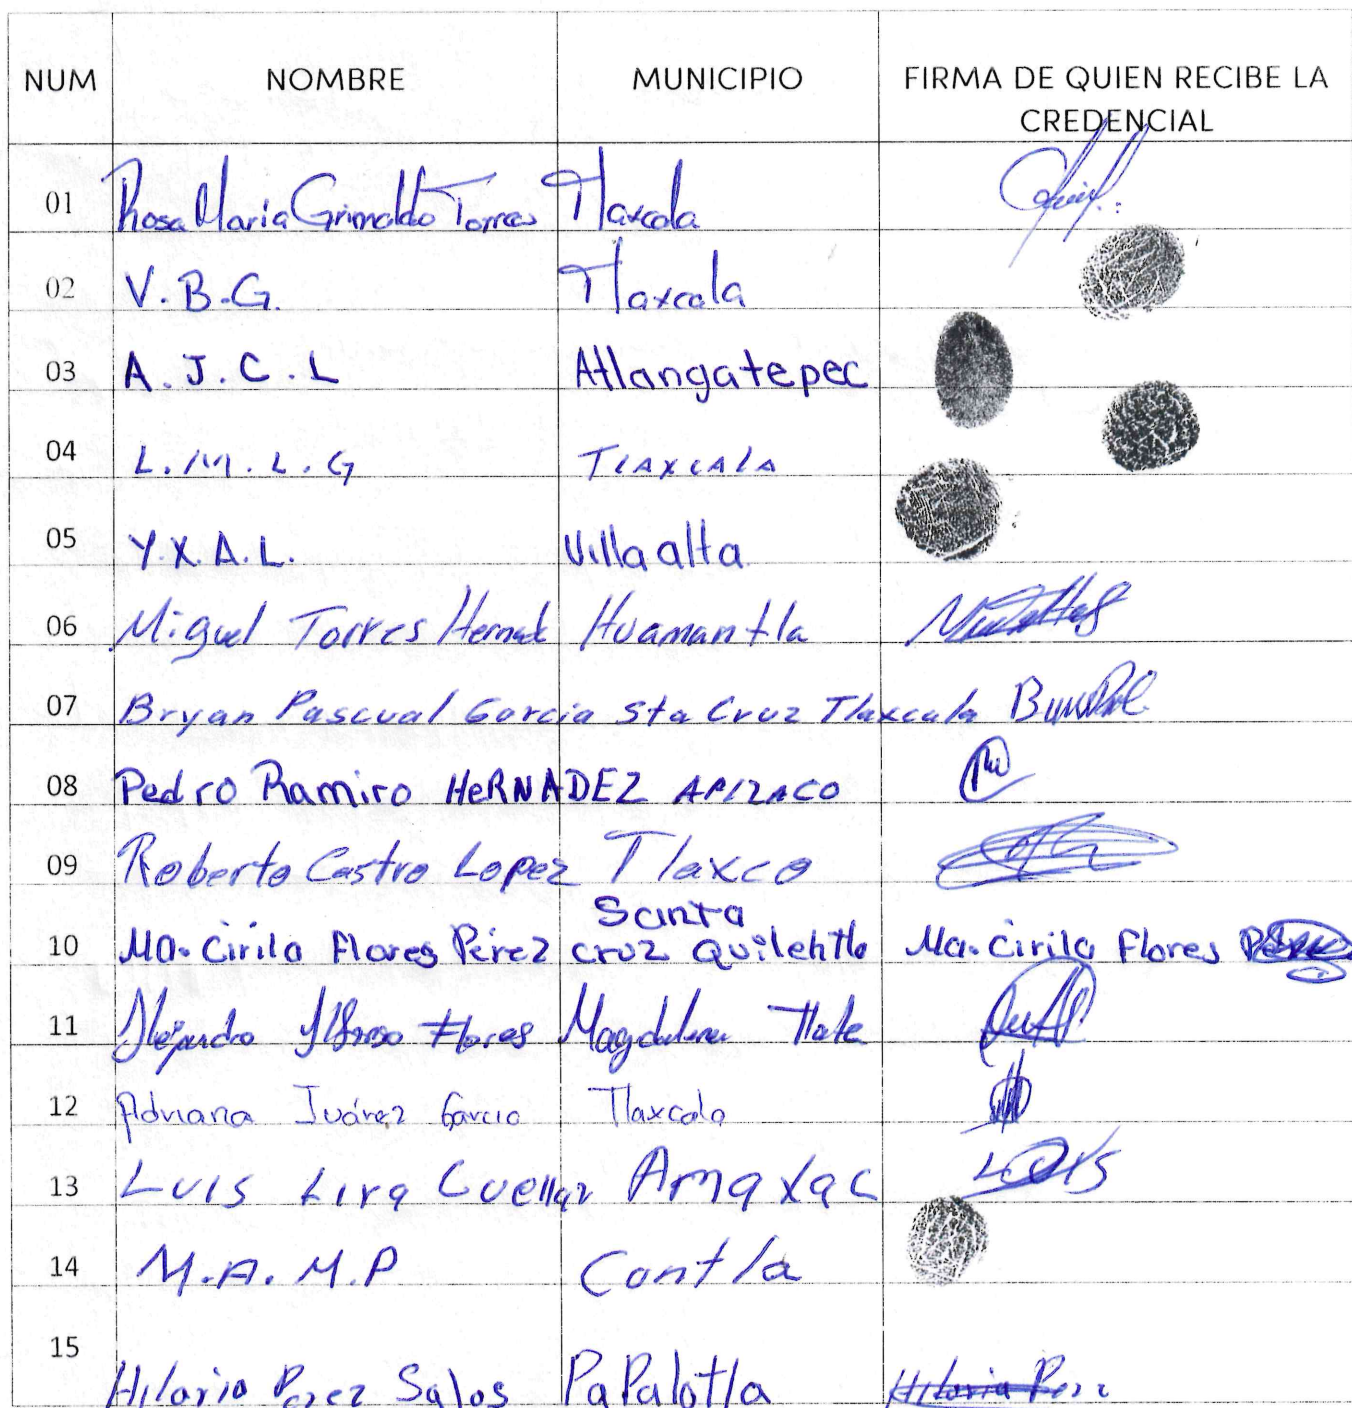 NUM NOMBRE MUNICIPIO FIRMA DE QUIEN RECIBE LA CREDENCIAL
01 Rosa María Grimaldo Torres Tlaxcala
02 V.B.G. Tlaxcala
03 A.J.C.L Atlangatepec
04 L.M.L.G TLAXCALA
05 Y.X.A.L. Villa alta
06 Miguel Torres Huamantla
07 Bryan Pascual Garcia Sta Cruz Tlaxcala
08 Pedro Ramiro HeRNADEZ APIZACO
09 Roberto Castro Lopez Tlaxco
10 Ma. Cirila Flores Pérez Santa cruz Quilehtla Ma. Cirila Flores
11 Alejandro Alfonso Flores Magdalena Tlate
12 Adriana Juárez Garcia Tlaxcala
13 Luis Lira Cuellar Amaxac Luis
14 M.A.M.P Contla
15 Hilaria Perez Salas PaPalotla Hilaria Perz